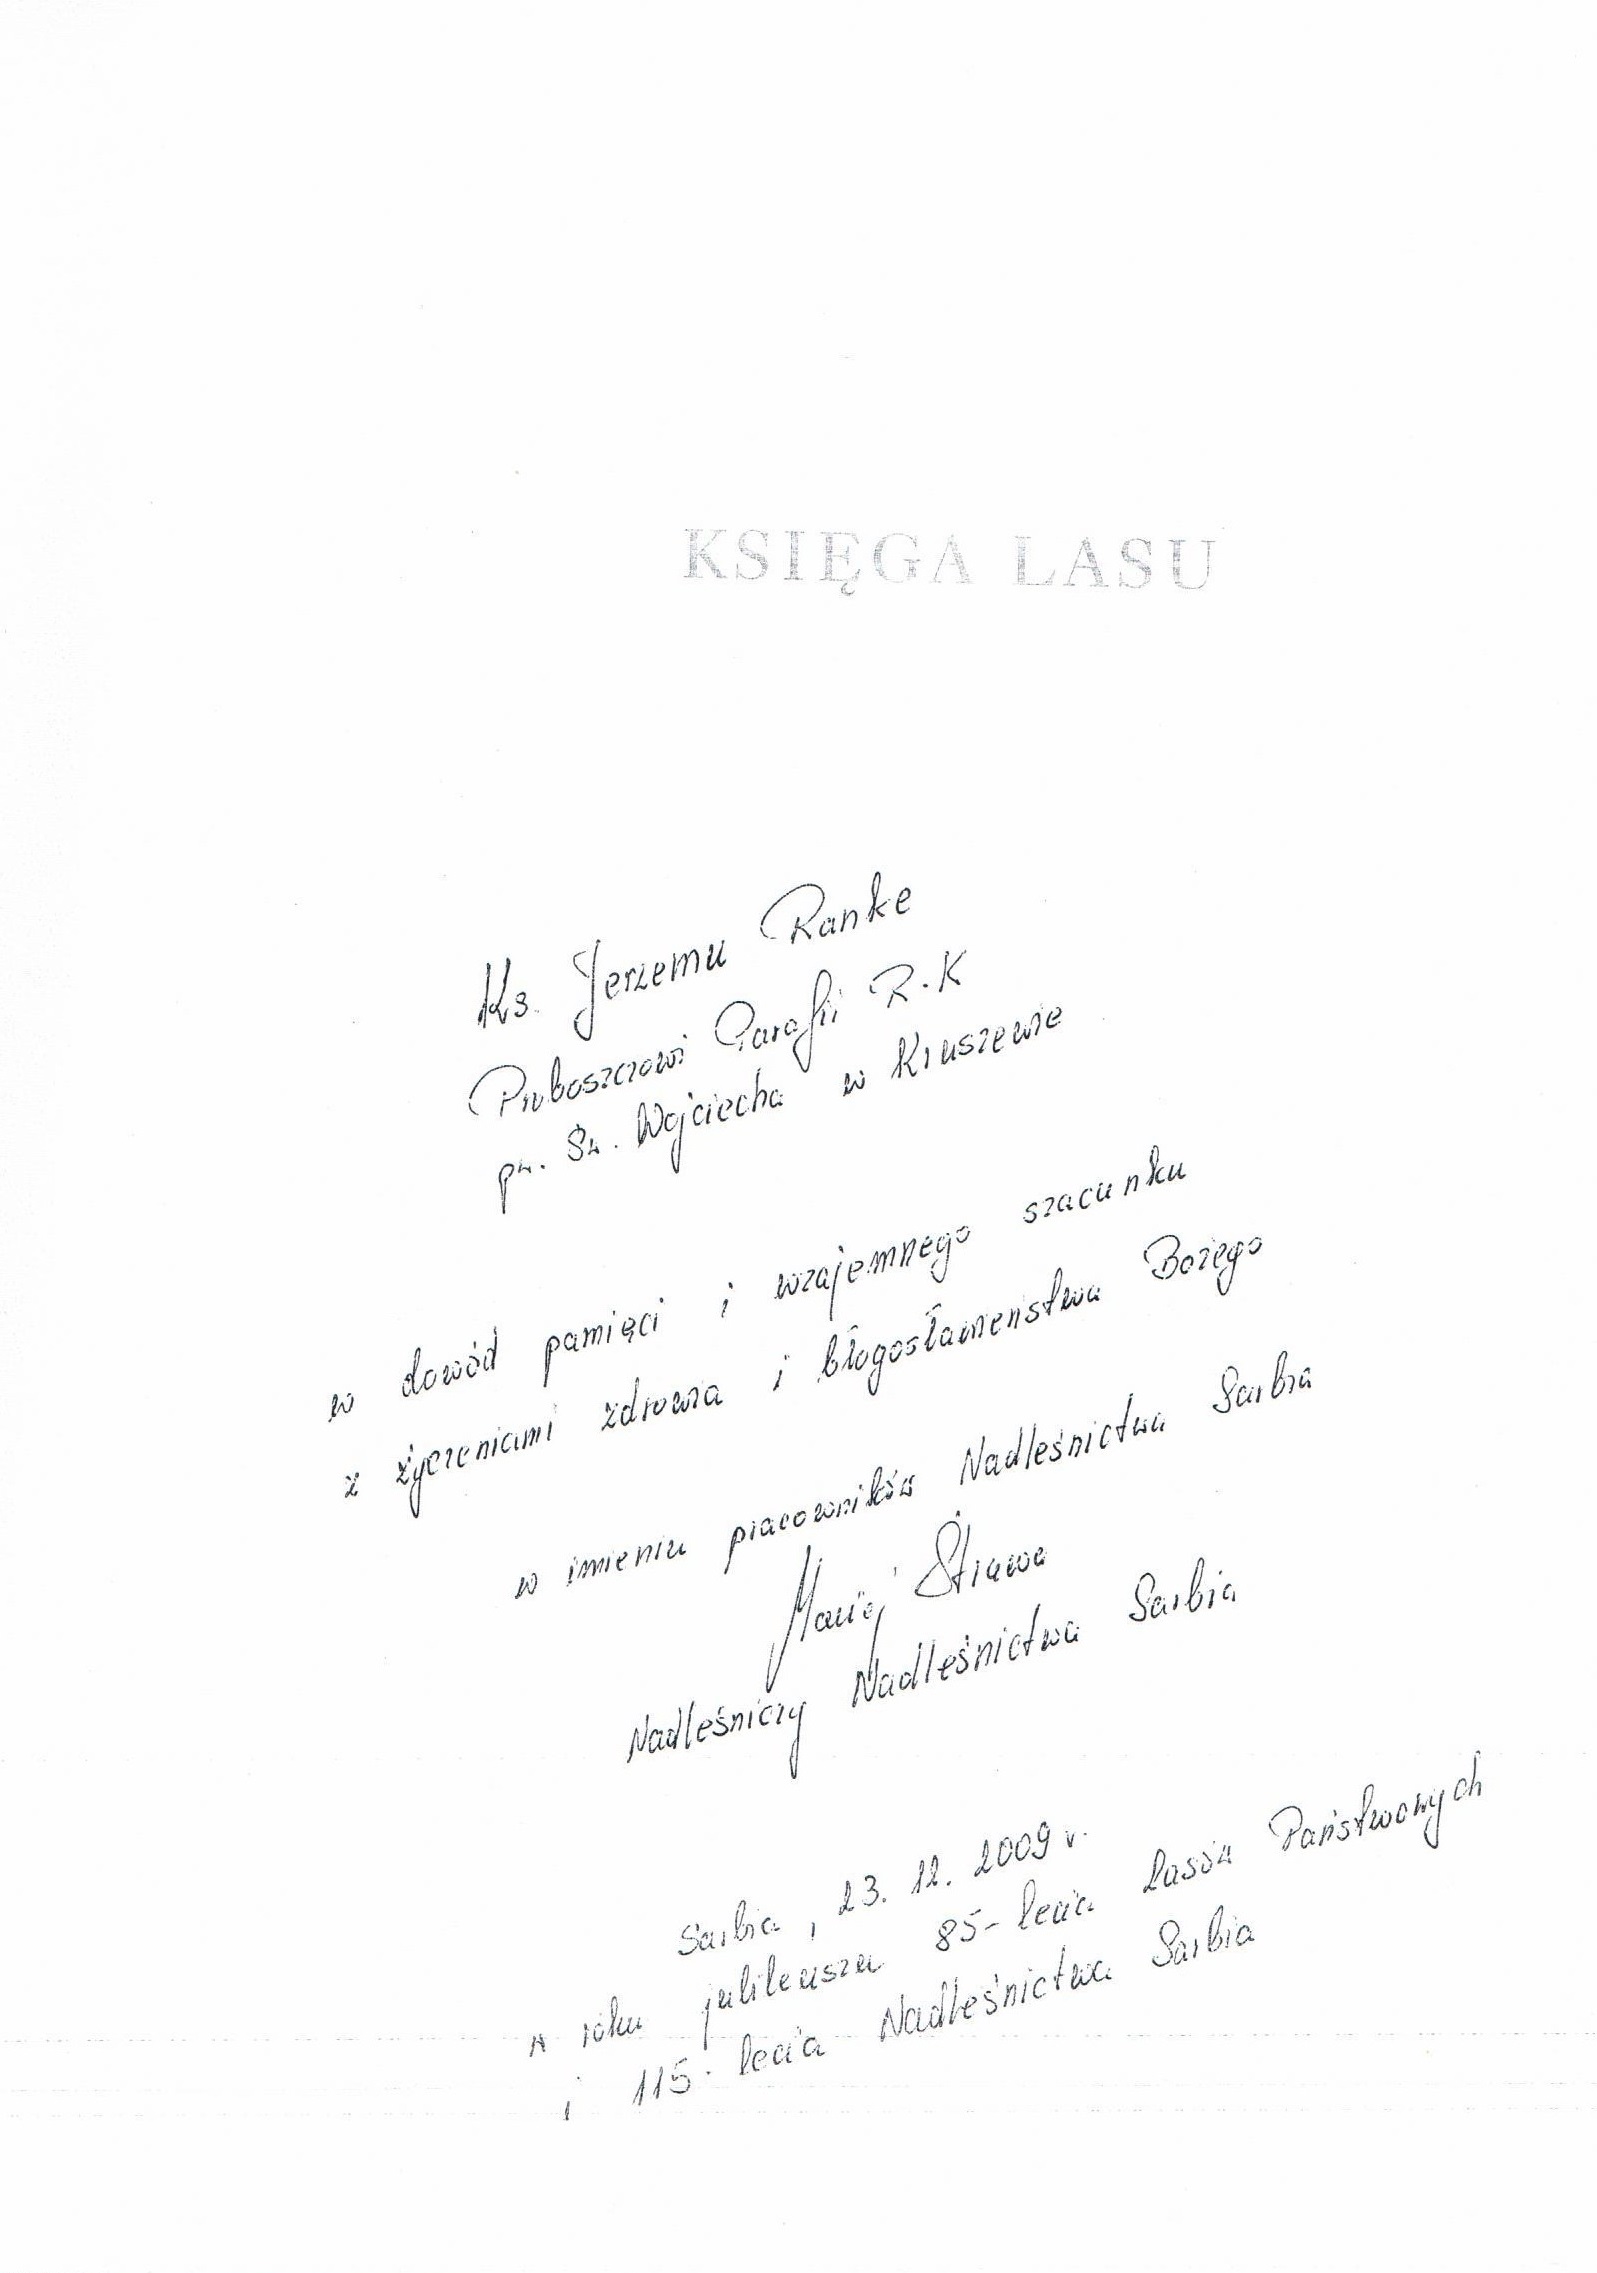 KSIĘGA LASU
Ks. Jerzemu Ranke
Proboszczowi Parafii R.K
pw. Św. Wojciecha w Kruszewie
w dowód pamięci i wzajemnego szacunku
z życzeniami zdrowia i błogosławieństwa Bożego
w imieniu pracowników Nadleśnictwa Sarbia
Maciej Strawa
Nadleśniczy Nadleśnictwa Sarbia
Sarbia, 23. 12. 2009 r.
w roku jubileuszu 85-lecia Lasów Państwowych
i 115-lecia Nadleśnictwa Sarbia